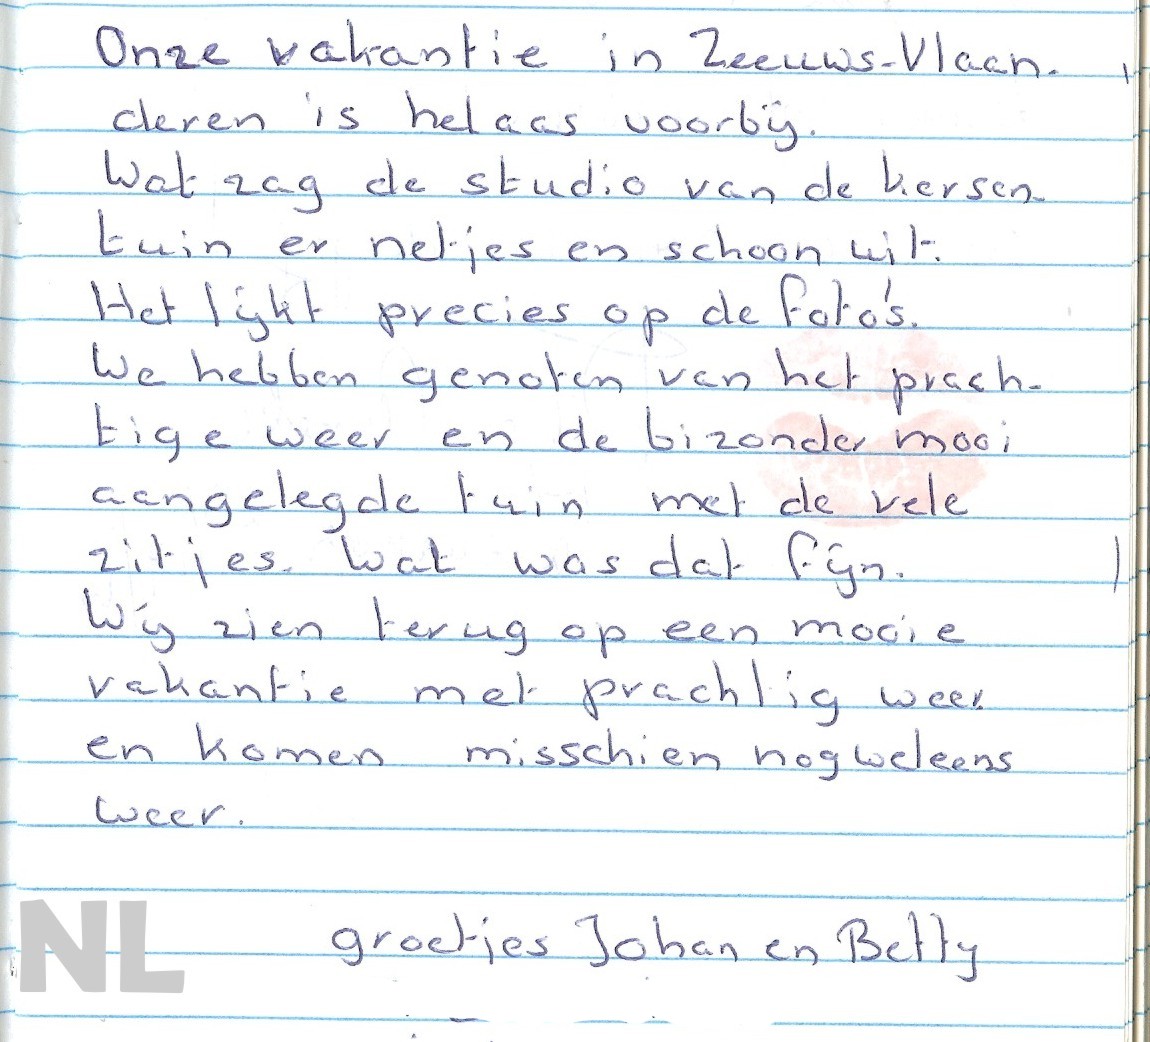 Onze vakantie in Zeeuws-Vlaan-
deren is helaas voorbij.
Wat zag de studio van de kersen-
tuin er netjes en schoon uit.
Het lijkt precies op de foto's.
We hebben genoten van het prach-
tige weer en de bizonder mooi
aangelegde tuin met de vele
zitjes. Wat was dat fijn.
Wij zien terug op een mooie
vakantie met prachtig weer
en komen misschien nog weleens
weer.
groetjes Johan en Betty
NL